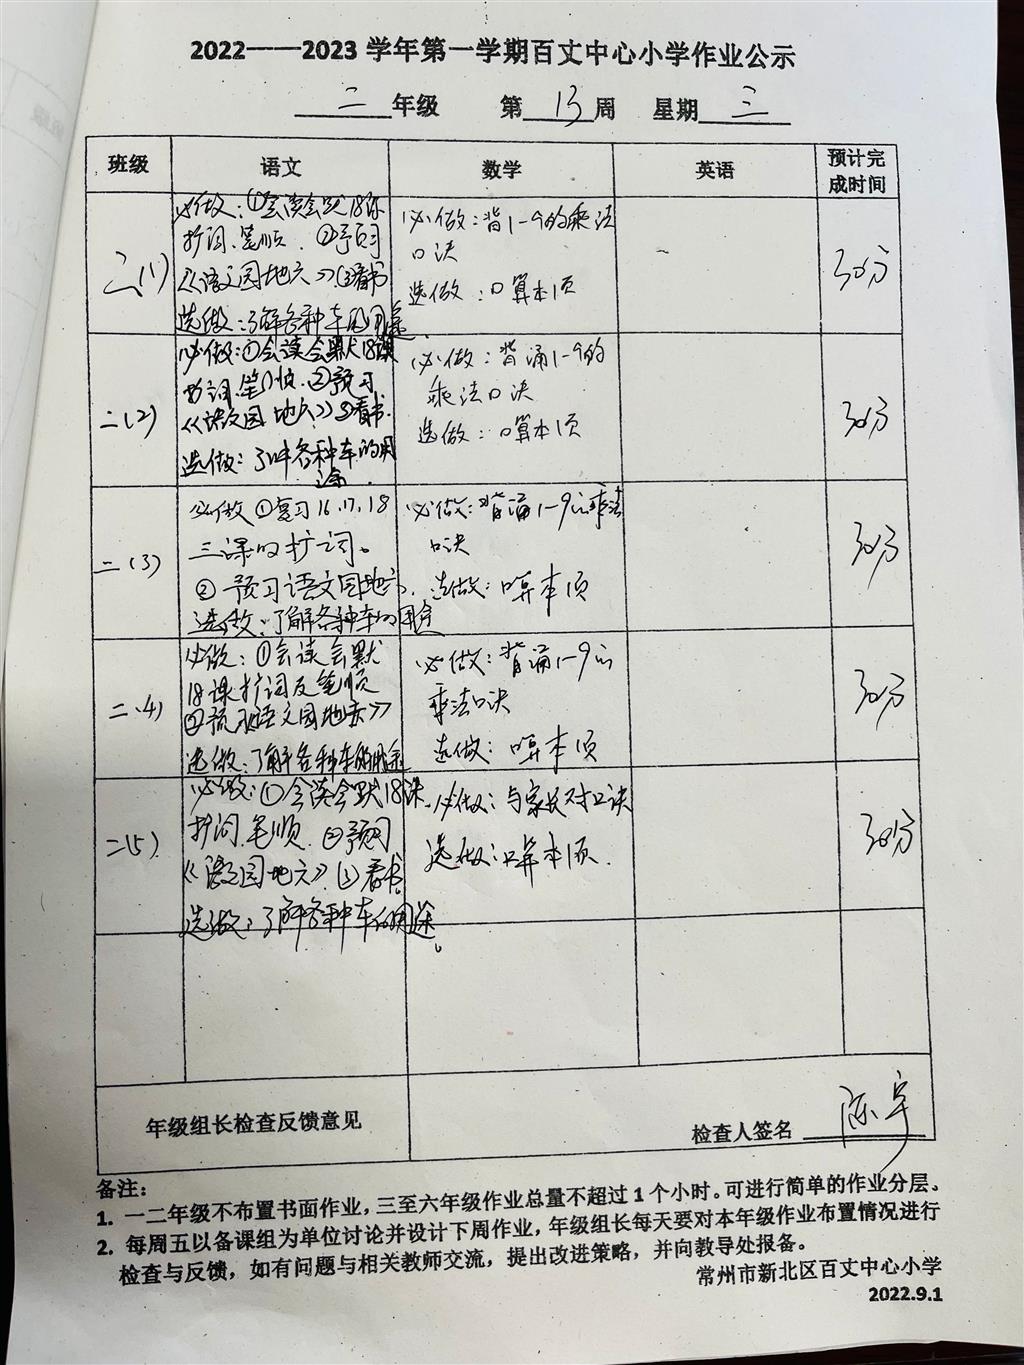 2022——2023学年第一学期百丈中心小学作业公示
二年级 第13周 星期三
班级 语文 数学 英语 预计完成时间
二(1)
必做:①会读会默18课
扩词.笔顺.②预习
《语文园地六》③看书
选做:了解各种车的用途
必做:背1-9的乘法
口决
选做:口算本1页
30分
二(2)
必做:①会读会默18课
扩词.笔顺.②预习
《语文园地六》③看书.
选做:了解各种车的用
途.
必做:背诵1-9的
乘法口决
选做:口算本1页
30分
二(3)
必做①复习16.17.18
三课的扩词。
②预习语文园地六.
选做:了解各种车的用途
必做:背诵1-9的乘法
口决
选做:口算本1页
30分
二(4)
必做:①会读会默
18课扩词及笔顺
②预习语文园地六》
选做:了解各种车的用途
必做:背诵1-9的
乘法口决
选做:口算本1页
30分
二(5)
必做:①会读会默18课.
扩词.笔顺.②预习
《语文园地六》③看书.
选做:了解各种车的用途。
必做:与家长对口诀
选做:口算本1页.
30分
年级组长检查反馈意见
检查人签名 陈宇
备注:
1. 一二年级不布置书面作业,三至六年级作业总量不超过1个小时。可进行简单的作业分层。
2. 每周五以备课组为单位讨论并设计下周作业,年级组长每天要对本年级作业布置情况进行
检查与反馈,如有问题与相关教师交流,提出改进策略,并向教导处报备。
常州市新北区百丈中心小学
2022.9.1